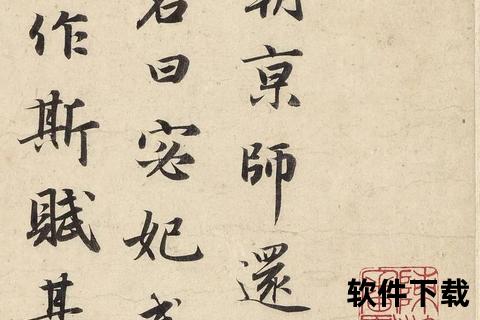 朝亰師還
名曰宓妃
作斯賦其
软件下载